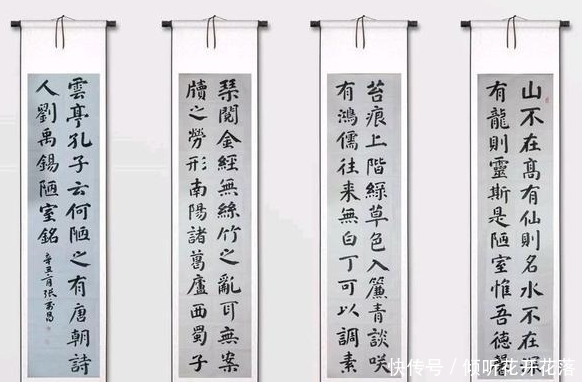 山不在髙有仙則名水不在深
有龍則靈斯是陋室惟吾德馨
苔痕上階綠草色入簾青談咲
有鴻儒往来無白丁可以調素
琴閱金經無絲竹之亂耳無案
牘之勞形南陽諸葛廬西蜀子
雲亭孔子云何陋之有唐朝詩
人劉禹錫陋室銘
辛丑月張昌
快传号 / 倾听花开花落